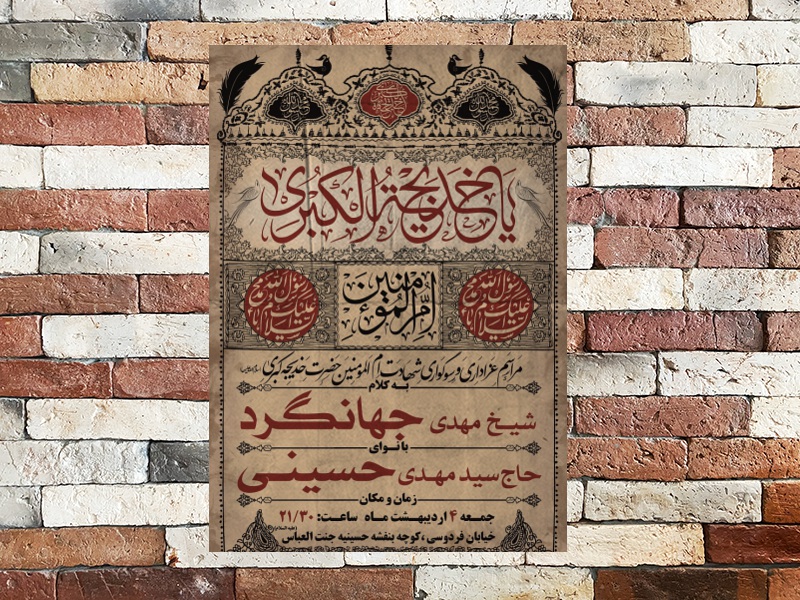 یا خدیجة الکبری
ام المؤمنین
مراسم عزاداری و سوگواری شهادت ام المومنین حضرت خدیجه کبری
به کلام
شیخ مهدی جهانگرد
با نوای
حاج سید مهدی حسینی
زمان و مکان
جمعه ۴ اردیبهشت ماه ساعت: ۲۱/۳۰
خیابان فردوسی ،کوچه بنفشه حسینیه جنت العباس